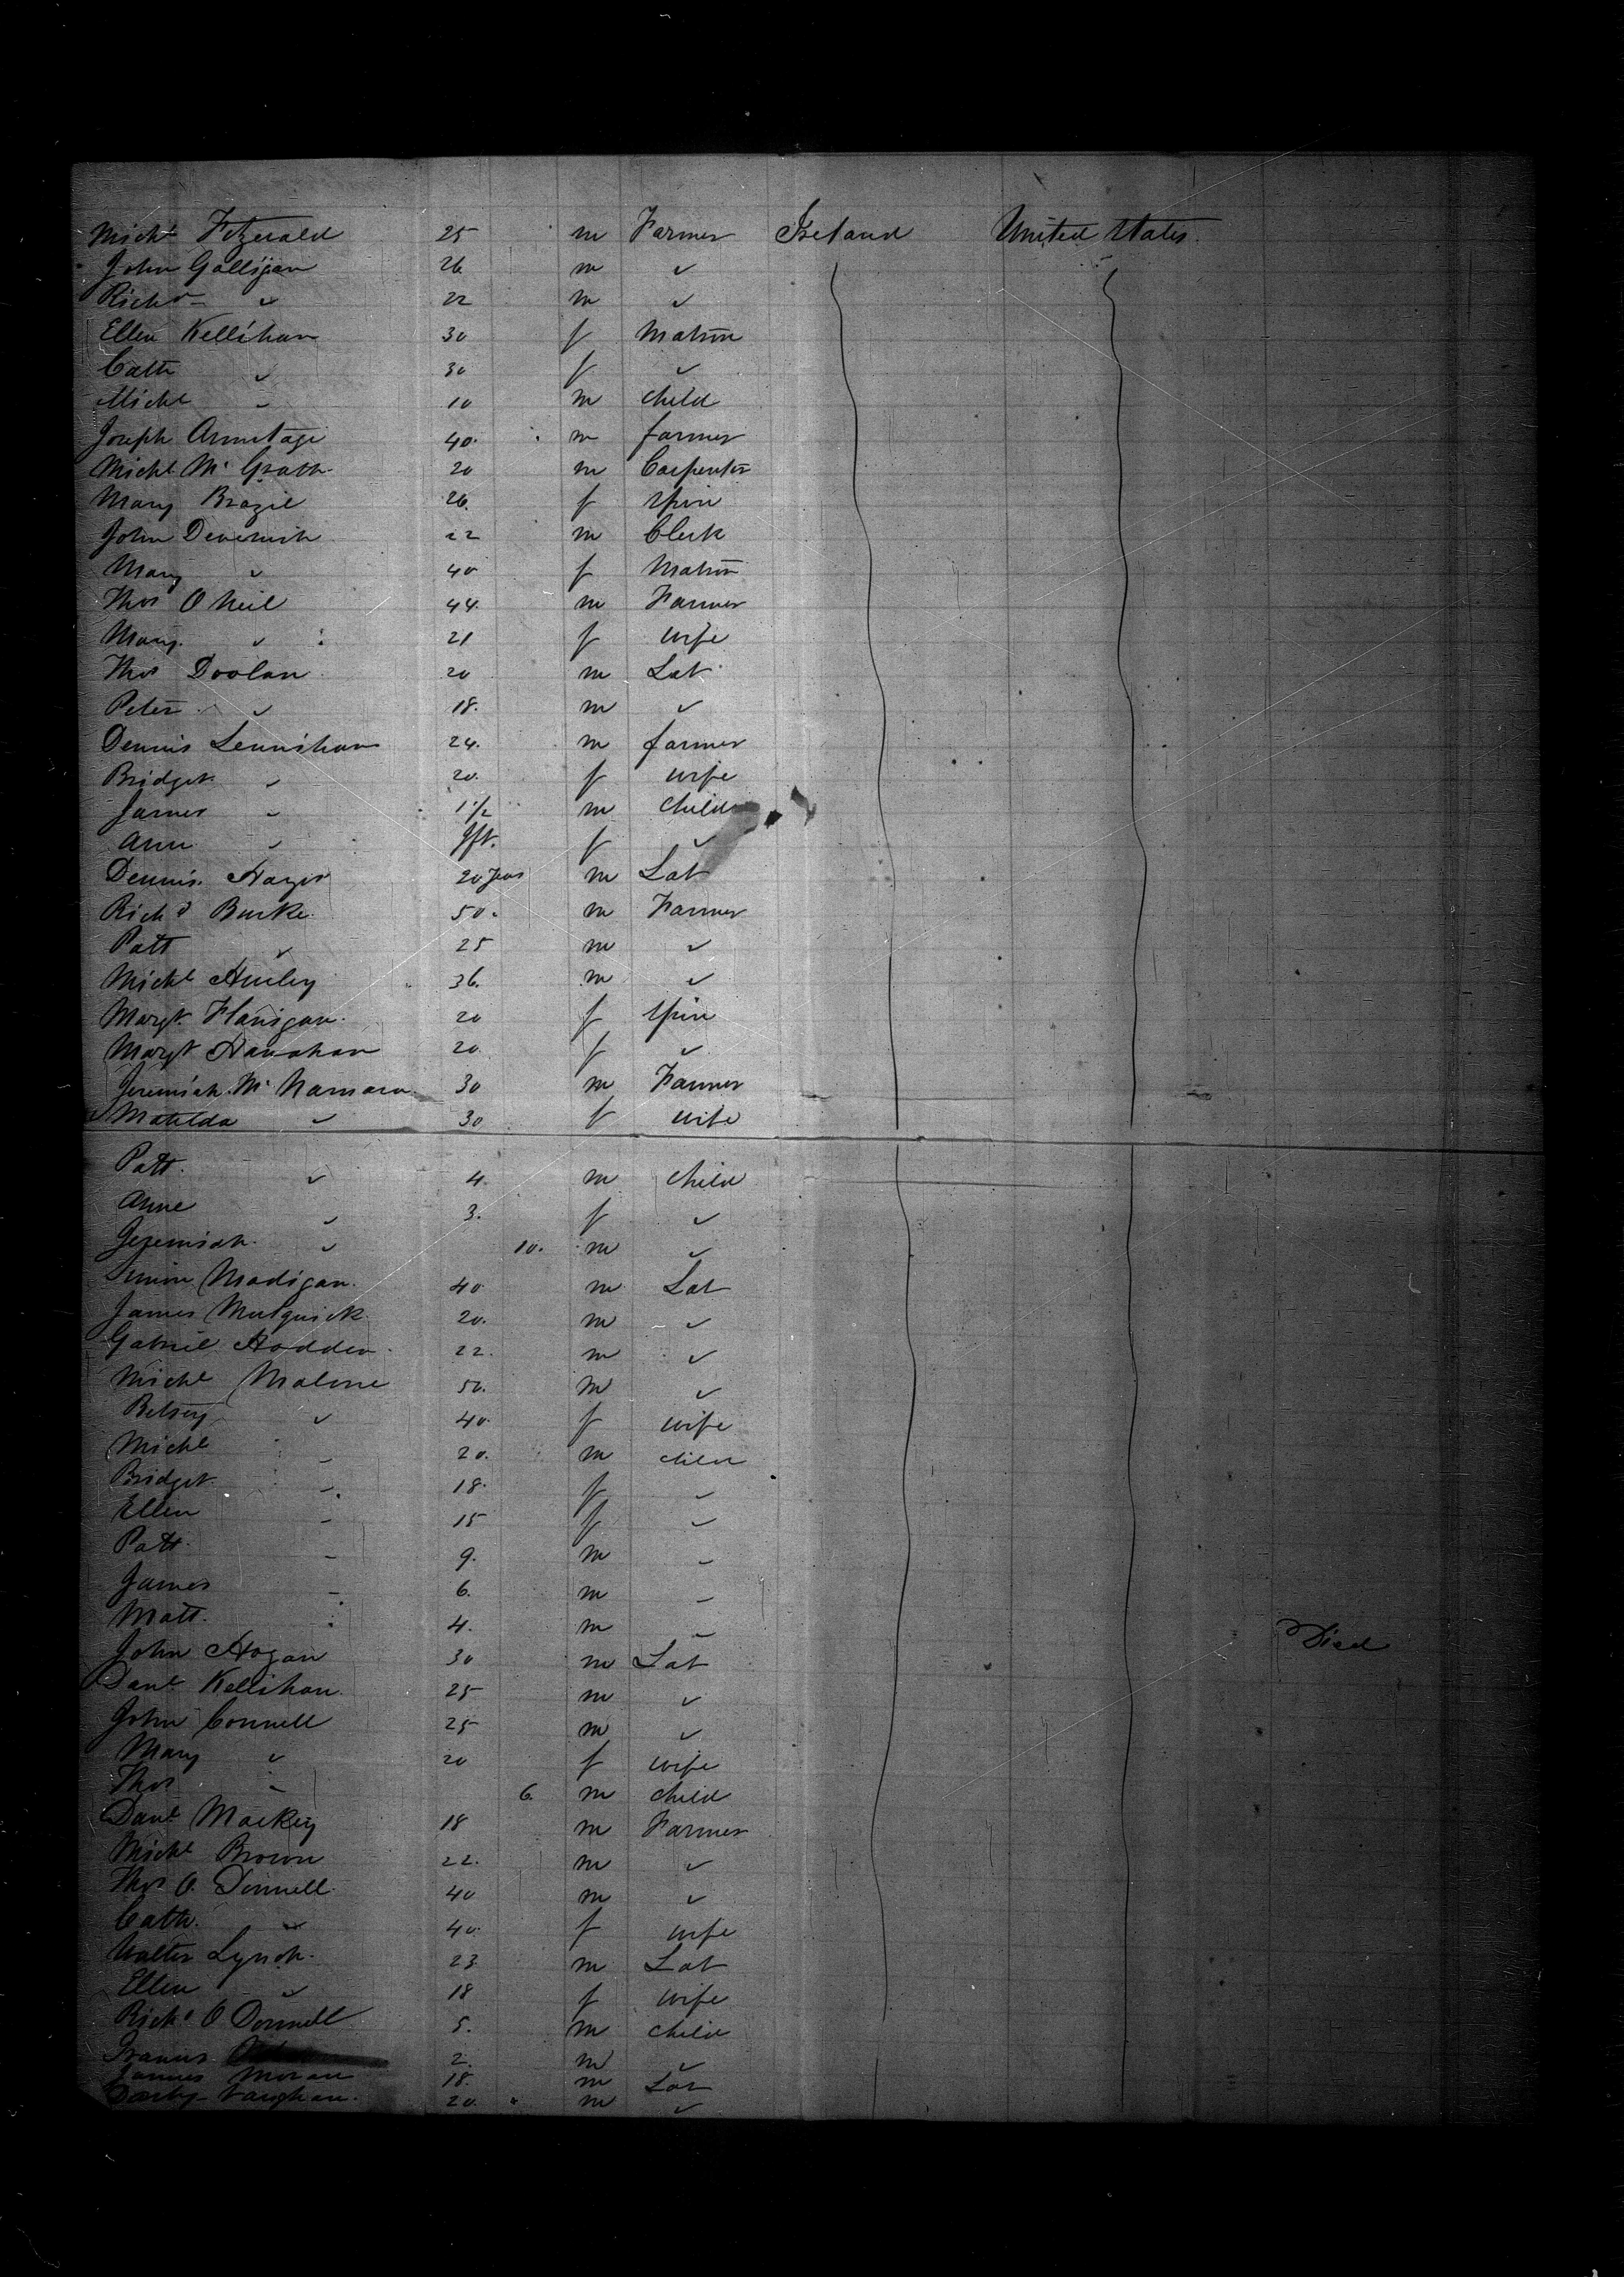 Michl Fitzerald 25 m Farmer Ireland United States.
John Galligan 26 m ✓
Richd ✓ 22 m ✓
Ellen Kellihan 30 f Matron
Cath ✓ 30 f ✓
Michl ✓ 10 m child
Joseph Armitage 40. m farmer
Michl McGrath. 20 m Carpenter
Mary Brazil 26. f Spin
John Devenish 22 m Clerk
Mary ✓ 40 f Matron
Thos O Neil 44. m Farmer
Mary. ✓ 21 f wife
Thos Doolan 20 m Lab
Peter ✓ 18. m ✓
Dennis Lennihan 24. m farmer
Bridget ✓ 20. f wife
James ✓ 1 1/2 m child
Ann ✓ Ift. f ✓
Dennis. Hayes 20 years m Lab
Richd Burke. 50. m Farmer
Patt ✓ 25 m ✓
Michl Hurley 36. m ✓
Margt. Flanigan. 20 f Spin
Margt Hanahan 20. f ✓
Jeremiah. Mc Namara. 30 m Farmer
Matilda ✓ 30 f wife
Patt. ✓ 4. m child
Anne ✓ 3. f ✓
Jeremiah. ✓ 10. m ✓
Madigan. 40 m Lab
James 20. m ✓
Gabriel Hodden. 22. m ✓
Michl Malone 50. m ✓
Betsey ✓ 40. f wife
Michl 20. m child
Bridget. ✓ 18. f ✓
Ellen 15 f ✓
Patt. 9. m ✓
James 6. m
Matt. 4. m Died
John Hogan 30 m Lab
Danl Kellihan. 25 m ✓
John Connell 25 m ✓
Mary ✓ 20 f wife
Thos 6. m child
Danl Mackey 18 m Farmer
Michl Brown 22. m ✓
Thos O. Donnell. 40 m ✓
Cath. ✓ 40. f wife
Walter Lynch. 23 m Lab
Ellen ✓ 18 f wife
Richd O Donnell 5. m child
Francis 2. m ✓
James Moran 18. m Lab
Darby Vaughan. 20. m ✓